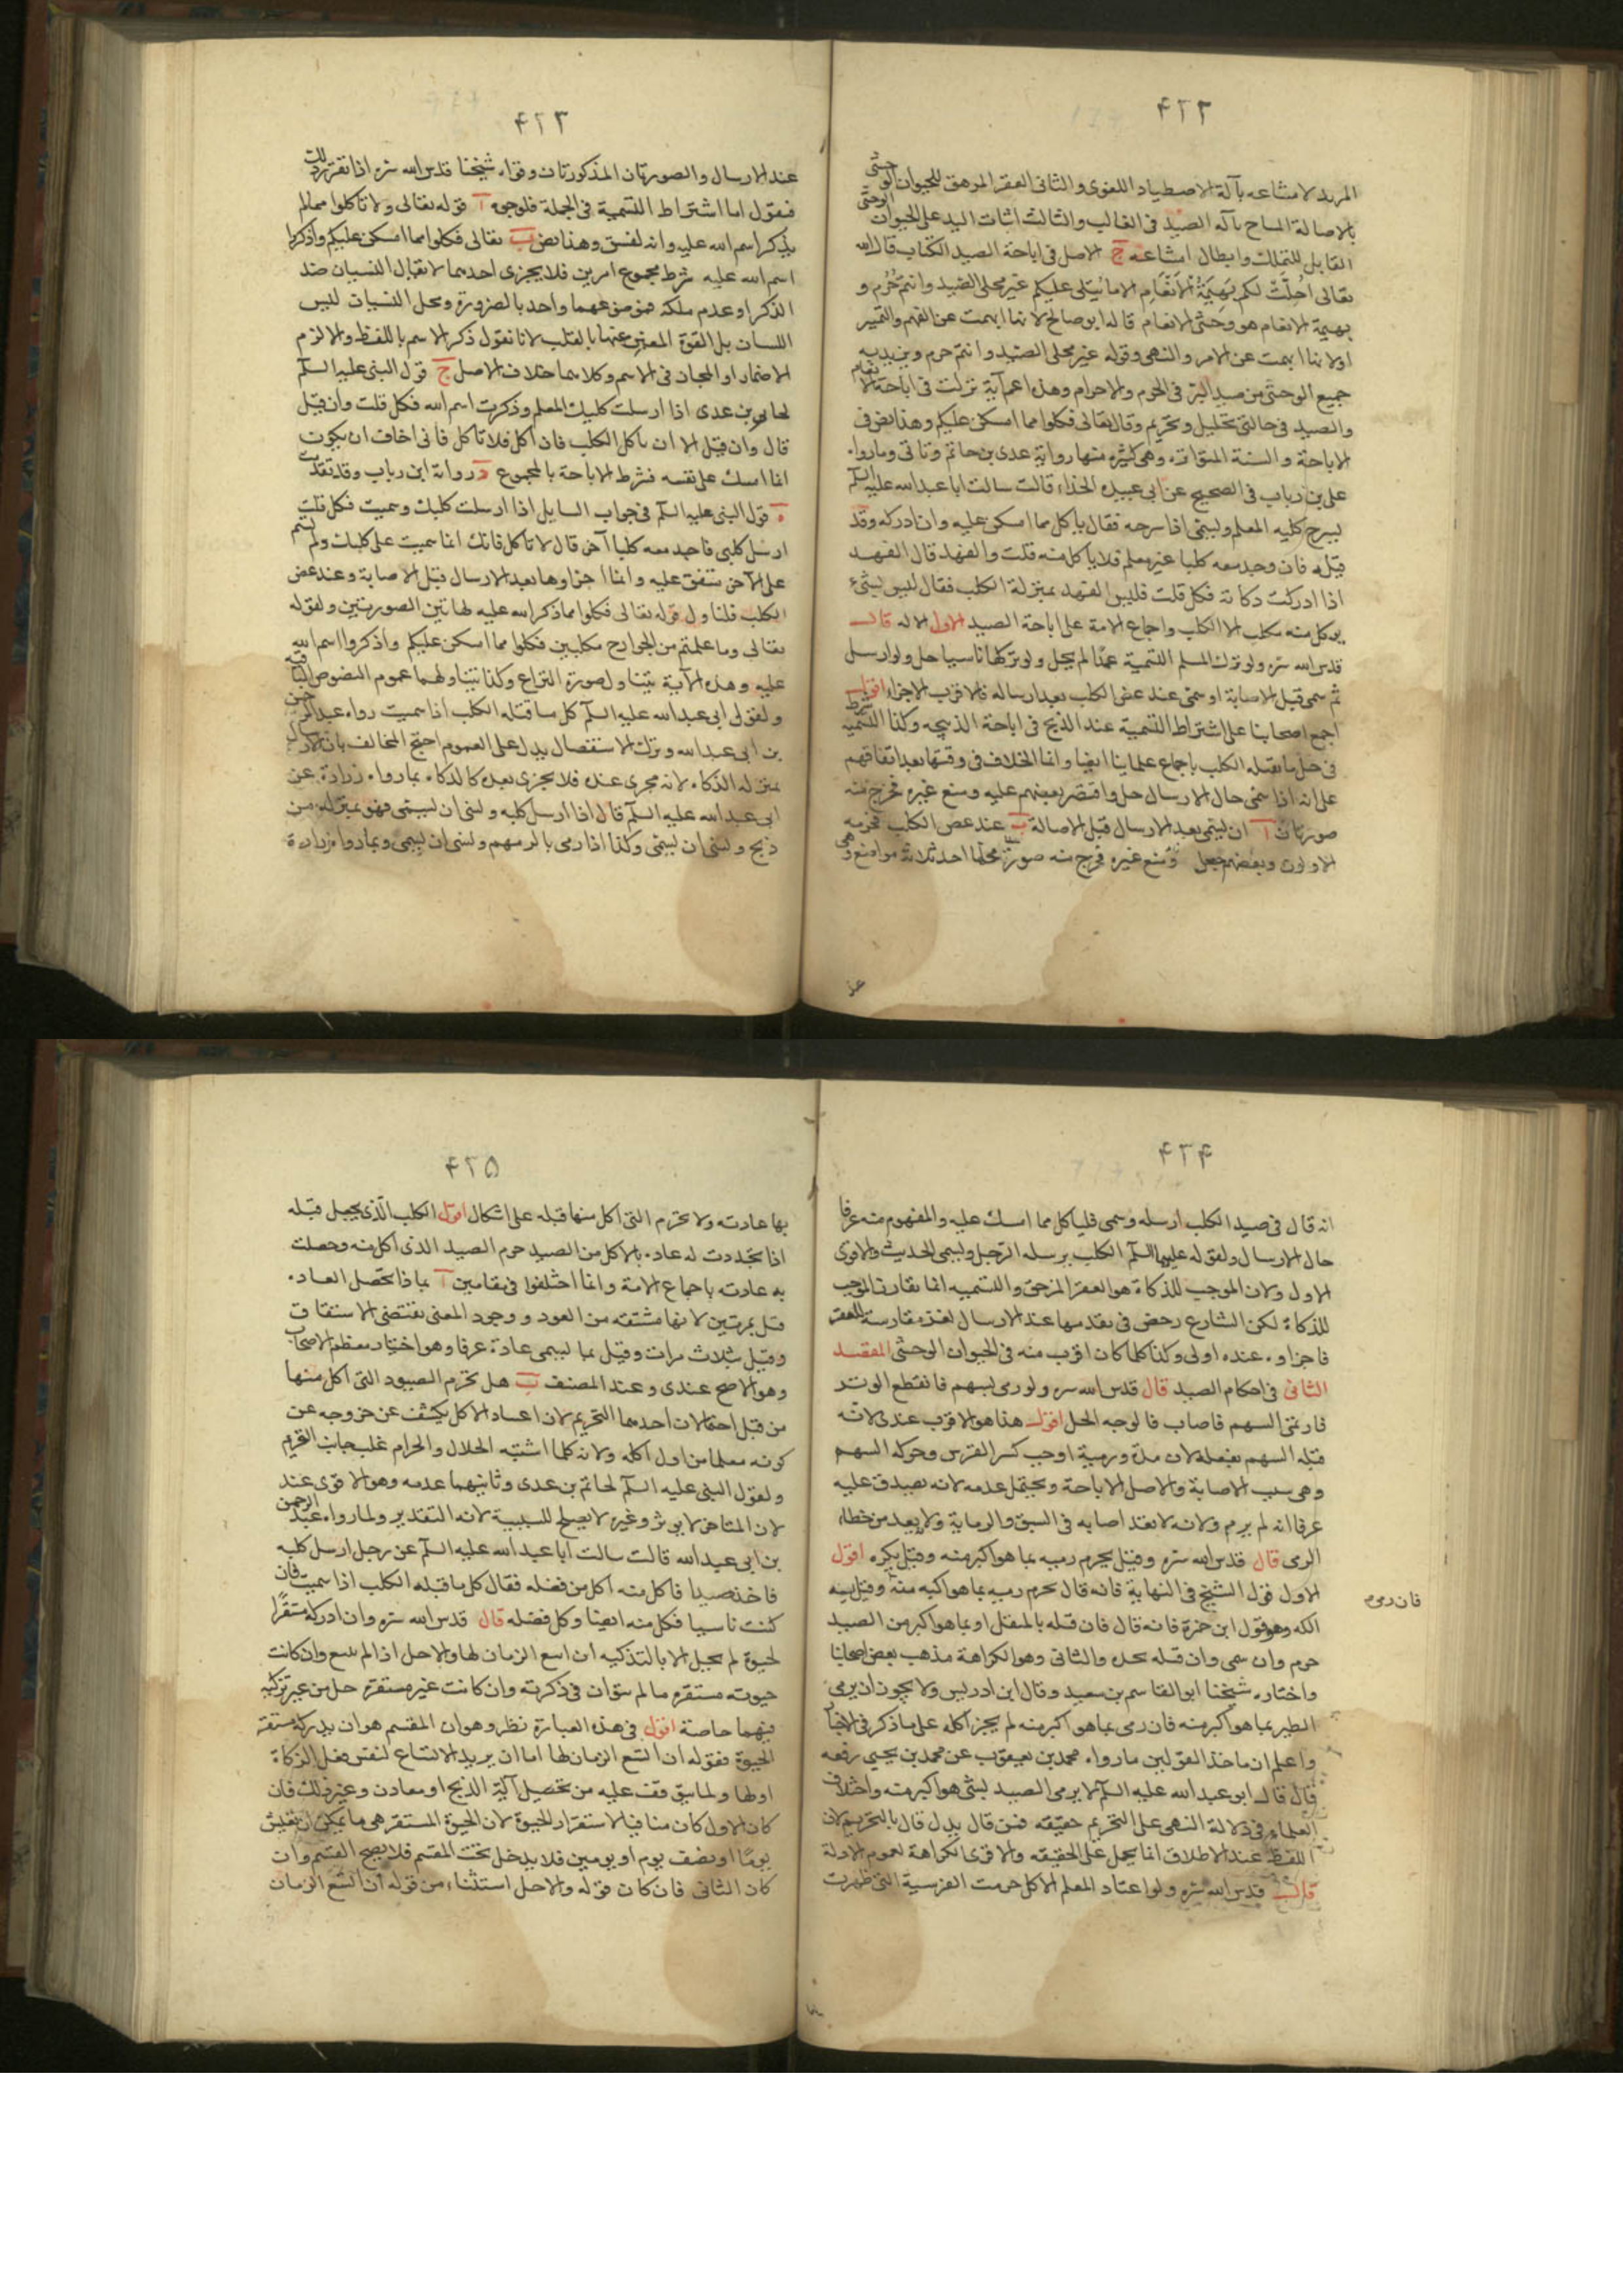 ۴۲۲
المزيد لامتناعه بآلة الاصطياد اللغوى والثانى العقر المزهق للحيوان الوحشى
بالاصالة المباح بآلة الصيد فى الغالب والثالث اثبات اليد على الحيوان الوحشى
القابل للتملك وابطال امتناعه ج الاصل فى اباحة الصيد الكتاب قال الله
تعالى احلت لكم بهيمة الانعام الا ما يتلى عليكم غير محلى الصيد وانتم حرم و
بهيمة الانعام هو وحشى الانعام قاله ابو صالح لانها ابهمت عن الفهم والتميز
او لانها ابهمت عن الامر والنهى وقوله غير محلى الصيد وانتم حرم
جميع الوحشى من صيد البر فى الحرم والاحرام وهذا اعم آية نزلت فى اباحة الانعام
والصيد فى حالتى تحليل وتحريم وقال تعالى فكلوا مما امسكن عليكم وهذا نص فى
الاباحة والسنة المتواترة وهى كثيرة منها رواية عدى بن حاتم وتاتى وما رواه
على بن رياب فى الصحيح عن ابى عبيدة الحذاء قالت سالت ابا عبد الله عليه السلم
يسرح كلبه المعلم ويسمى اذا سرحه فقال ياكل مما امسكن عليه وان ادركه وقد
قتله فان وجد معه كلبا غير معلم فلا ياكل منه قلت والفهد قال الفهد
اذا ادركت ذكاته فكل قلت فليس الفهد بمنزلة الكلب فقال ليس شىء
يوكل منه مكلب الا الكلب واجماع الامة على اباحة الصيد الاول الاله قال
قدس الله سره ولو ترك المسلم التسمية عمدا لم يحل ولو تركها ناسيا حل ولو ارسل
ثم سمى قبل الاصابة او سمى عند عض الكلب بعد ارساله فالاقرب الاجزاء اقول
اجمع اصحابنا على اشتراط التسمية عند الذبح فى اباحة الذبيحه وكذا شرط التسمية
فى حل ما يقتله الكلب باجماع علماينا ايضا وانما الخلاف فى وقتها بعد اتفاقهم
على انه اذا سمى حال الارسال حل واقتصر بعضهم عليه ومنع غيره فخرج منه
صورتان آ ان يسمى بعد الارسال قبل الاصالة ب عند عض الكلب فحرمه
الاولون وبعضهم جعل ومنع غيره فخرج منه صورتا محلها احد ثلاثة مواضع وهى
عند
۴۲۳
عند الارسال والصورتان المذكورتان وقواه شيخنا قدس الله سره اذا تقرر ذلك
فنقول اما اشتراط التسمية فى الجملة فلوجوه آ قوله تعالى ولا تاكلوا مما لم
يذكر اسم الله عليه وانه لفسق وهذا نص ب تعالى فكلوا مما امسكن عليكم واذكروا
اسم الله عليه شرط مجموع امرين فلا يجزى احدهما لا يقال النسيان ضد
الذكر او عدم ملكة فهو من عهما واحد بالضرورة ومحل النسيان ليس
اللسان بل القوة المعبر عنها بالقلب لانا نقول ذكر الاسم باللفظ والا لزم
الاضمار او المجاز فى الاسم وكلاهما خلاف الاصل ج قول النبى عليه السلم
لحاتم بن عدى اذا ارسلت كلبك المعلم وذكرت اسم الله فكل قلت وان قتل
قال وان قتل الا ان ياكل الكلب فان اكل فلا تاكل فانى اخاف ان يكون
انما امسك على نفسه فشرط الاباحة بالمجموع د رواية ابن رياب وقد تقدمت
ه قول النبى عليه السلم فى جواب السايل اذا ارسلت كلبك وسميت فكل قلت
ارسل كلبى فاجد معه كلبا آخر قال لا تاكل فانك انما سميت على كلبك ولم تسم
على الآخر متفق عليه وانما اجزاوها بعد الارسال قبل الاصابة وعند عض
الكلب فلتناول قوله تعالى فكلوا مما ذكر اسم الله عليه لهاتين الصورتين ولقوله
تعالى وما علمتم من الجوارح مكلبين فكلوا مما امسكن عليكم واذكروا اسم الله
عليه وهذه الآية تتناول صورة النزاع وكذا يتناولهما عموم النصوص الباقية
ولقول ابى عبد الله عليه السلم كل ما قتله الكلب اذا سميت رواه عبد الرحمن
بن ابى عبد الله وترك الاستفصال يدل على العموم احتج المخالف بان الارسال
بمنزلة الذكاة لانه مجرى عنده فلا يجزى بعده كالذكاة بما رواه زرارة عن
ابى عبد الله عليه السلم قال اذا ارسل كلبه ونسى ان يسمى فهو بمنزلة من
ذبح ونسى ان يسمى وكذا اذا رمى بالسهم ونسى ان يسمى وبما رواه زرارة
۴۲۴
انه قال فى صيد الكلب ارسله وسمى فلياكل مما امسك عليه والمفهوم منه عرفا
حال الارسال ولقوله عليهما السلم الكلب يرسله الرجل ويسمى الحديث والاقوى
الاول ولان الموجب للذكاة هو العقر المزهق والتسميه انما تقارن الموجب
للذكاة لكن الشارع رخص فى تقدمها عند الارسال لتعذر مقارنته للعقر
فاجزاوه عنده اولى وكذا كلما كان اقرب منه فى الحيوان الوحشى المقصد
الثانى فى احكام الصيد قال قدس الله سره ولو رمى بسهم فانقطع الوتر
فارتمى السهم فاصاب فالوجه الحل اقول هذا هو الاقرب عندى لانه
قتله السهم بفعله لان مده ورميه اوجب كسر القوس وحركة السهم
وهى سبب الاصابة والاصل الاباحة ويحتمل عدمه لانه يصدق عليه
عرفا انه لم يرم ولانه لا يعد اصابه فى السبق والرماية ولا يعد من خطاء
الرمى قال قدس الله سره وقيل يحرم رميه بما هو اكبر منه وقيل يكره اقول
الاول قول الشيخ فى النهاية فانه قال يحرم رميه بما هو اكبر منه وقتل
الكه وهو قول ابن حمزة فانه قال فان قتله بالمثقل او بما هو اكبر من الصيد
حرم وان سمى وان قتله بحده والثانى وهو الكراهة مذهب بعض اصحابنا
واختاره شيخنا ابو القاسم بن سعيد وقال ابن ادريس ولا يجوز ان يرمى
الطير بما هو اكبر منه فان رمى بما هو اكبر منه لم يجز اكله على ما ذكر فى الاخبار
واعلم ان ماخذ القولين ما رواه محمد بن يعقوب عن محمد بن يحيى رفعه
قال قال ابو عبد الله عليه السلم لا يرمى الصيد بشى هو اكبر منه واختلاف
العلماء فى دلالة النهى على التحريم حقيقه فمن قال يدل قال بالتحريم لان
اللفظ عند الاطلاق انما يحمل على الحقيقه والاقوى الكراهة لعموم الادلة
قال قدس الله سره ولو اعتاد المعلم الاكل حرمت الفريسة التى ظهرت
فان رمى
۴۲۵
بها عادته ولا تحرم التى اكل منها قبله على اشكال اقول الكلب الذى يحل قتله
اذا تجددت له عادة بالاكل من الصيد حرم الصيد الذى اكل منه وحصلت
به عادته باجماع الامة وانما اختلفوا فى مقامين آ بماذا تحصل العادة
قيل بمرتين لانها مشتقه من العود ووجود المعنى يقتضى الاشتقاق
وقيل بثلاث مرات وقيل بما يسمى عادة عرفا وهو اختيار معظم الاصحاب
وهو الاصح عندى وعند المصنف ب هل تحرم الصيود التى اكل منها
من قبل احتمالان احدهما التحريم لان اعتياد الاكل يكشف عن خروجه عن
كونه معلما من اول اكله ولانه كلما اشتبه الحلال والحرام غلب جانب التحريم
ولقول النبى عليه السلم لحاتم بن عدى وثانيهما عدمه وهو الاقوى عند
لان المتاخر لا يوثر وغيره لا يصلح للسببية لانه التقدير ولما رواه عبد الرحمن
بن ابى عبد الله قالت سالت ابا عبد الله عليه السلم عن رجل ارسل كلبه
فاخذ صيدا فاكل منه اكل من فضله فقال كل ما قتله الكلب اذا سميت فان
كنت ناسيا فكل منه ايضا وكل فضله قال قدس الله سره وان ادركه مستقرا
لحيوة لم يحل الا بالتذكيه ان اتسع الزمان لها والا حل اذا لم يتسع وان كانت
حيوته مستقره ما لم يتوان فى ذكوته وان كانت غير مستقره حل من غير تزكيه
فيهما خاصة اقول فى هذه العبارة نظر وهو ان المقسم هو ان يدركه مستقر
الحيوة فقوله ان اتسع الزمان لها اما ان يريد الاتساع لنفس فعل الزكاة
او لها ولما يتوقف عليه من تحصيل آلة الذبح او معادن وغير ذلك فان
كان الاول كان منافيا لاستقرار الحيوة لان الحيوة المستقره هى ما يمكن ان يعيش
يوما او نصف يوم او يومين فلا يدخل تحت المقسم فلا يصح القسم وان
كان الثانى فان كان قوله والا حل استثناء من قوله ان اتسع الزمان